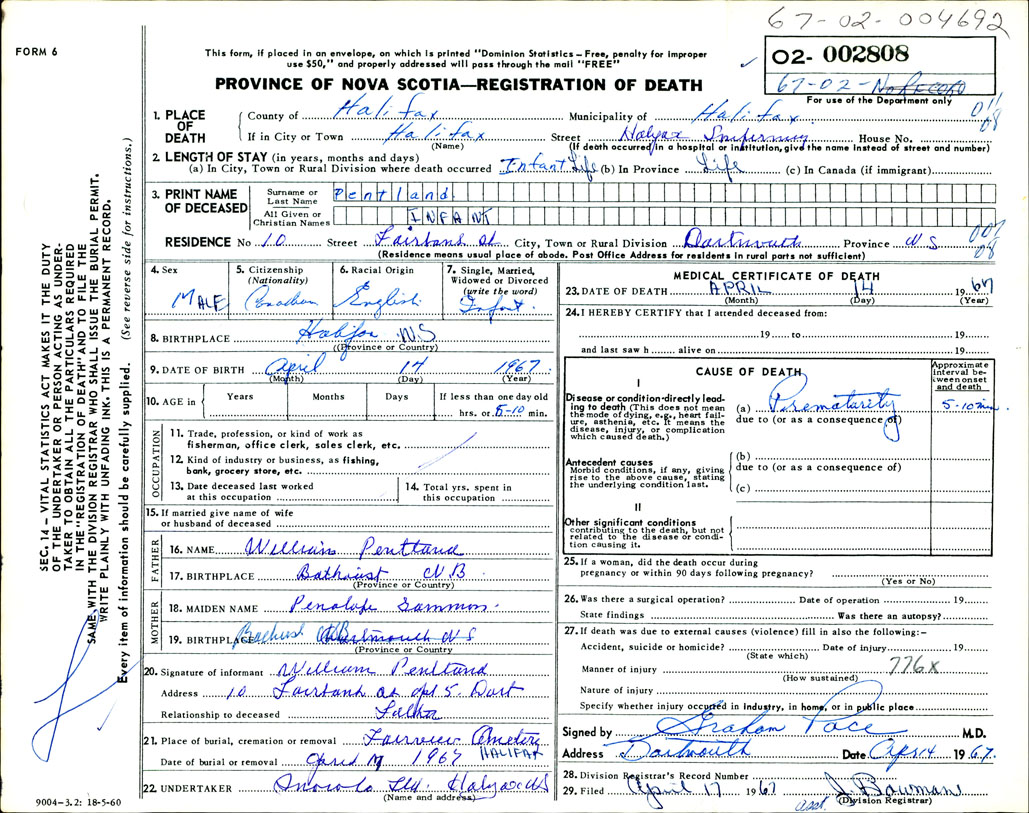 67-02-004692
FORM 6
This form, if placed in an envelope, on which is printed "Dominion Statistics – Free, penalty for improper
use $50," and properly addressed will pass through the mail "FREE"
O2- 002808
67-02-No RECORD
For use of the Department only
PROVINCE OF NOVA SCOTIA—REGISTRATION OF DEATH
1. PLACE OF DEATH
County of Halifax Municipality of Halifax
If in City or Town Halifax Street Halifax Infirmary House No.
(Name) (If death occurred in a hospital or institution, give the name instead of street and number)
2. LENGTH OF STAY (in years, months and days)
(a) In City, Town or Rural Division where death occurred Infant Life (b) In Province Life (c) In Canada (if immigrant)
3. PRINT NAME OF DECEASED
Surname or Last Name Pentland
All Given or Christian Names INFANT
RESIDENCE No 10 Street Fairbank St City, Town or Rural Division Dartmouth Province NS
(Residence means usual place of abode. Post Office Address for residents in rural parts not sufficient)
4. Sex MALE
5. Citizenship (Nationality) Canadian
6. Racial Origin English
7. Single, Married, Widowed or Divorced (write the word) Infant
8. BIRTHPLACE Halifax NS
(Province or Country)
9. DATE OF BIRTH April 14 1967
(Month) (Day) (Year)
10. AGE in Years Months Days If less than one day old
hrs. or 5-10 min.
OCCUPATION
11. Trade, profession, or kind of work as
fisherman, office clerk, sales clerk, etc.
12. Kind of industry or business, as fishing,
bank, grocery store, etc.
13. Date deceased last worked
at this occupation
14. Total yrs. spent in
this occupation
15. If married give name of wife
or husband of deceased
FATHER
16. NAME William Pentland
17. BIRTHPLACE Bathurst N.B.
(Province or Country)
MOTHER
18. MAIDEN NAME Penolope Sammon
19. BIRTHPLACE Bathurst NB Dartmouth NS
(Province or Country
20. Signature of informant William Pentland
Address 10 Fairbank St apt 5 Dart
Relationship to deceased Father
21. Place of burial, cremation or removal Fairview Cemetery
HALIFAX
Date of burial or removal April 17 1967
22. UNDERTAKER Ltd. Halifax NS
(Name and address)
MEDICAL CERTIFICATE OF DEATH
23. DATE OF DEATH APRIL 14 1967
(Month) (Day) (Year)
24. I HEREBY CERTIFY that I attended deceased from:
19 to 19
and last saw h alive on 19
CAUSE OF DEATH
Approximate interval between onset and death
I
Disease or condition directly leading to death (This does not mean the mode of dying, e.g., heart failure, asthenia, etc. It means the disease, injury, or complication which caused death.)
(a) Prematurity 5-10 min
due to (or as a consequence of)
Antecedent causes
Morbid conditions, if any, giving rise to the above cause, stating the underlying condition last.
(b)
due to (or as a consequence of)
(c)
II
Other significant conditions
contributing to the death, but not related to the disease or condition causing it.
25. If a woman, did the death occur during
pregnancy or within 90 days following pregnancy?
(Yes or No)
26. Was there a surgical operation? Date of operation 19
State findings Was there an autopsy?
27. If death was due to external causes (violence) fill in also the following:–
Accident, suicide or homicide? Date of injury 19
(State which)
Manner of injury 776.X
(How sustained)
Nature of injury
Specify whether injury occurred in industry, in home, or in public place
Signed by Graham Pace M.D.
Address Dartmouth Date Apr 14 1967.
28. Division Registrar's Record Number
29. Filed April 17 1967 J Bowman
asst. (Division Registrar)
9004-3.2: 18-5-60
SEC. 14 – VITAL STATISTICS ACT MAKES IT THE DUTY
OF THE UNDERTAKER OR PERSON ACTING AS UNDER-
TAKER TO OBTAIN ALL THE PARTICULARS REQUIRED
IN THE "REGISTRATION OF DEATH" AND TO FILE THE
SAME WITH THE DIVISION REGISTRAR WHO SHALL ISSUE THE BURIAL PERMIT.
WRITE PLAINLY WITH UNFADING INK. THIS IS A PERMANENT RECORD.
Every item of information should be carefully supplied. (See reverse side for instructions.)